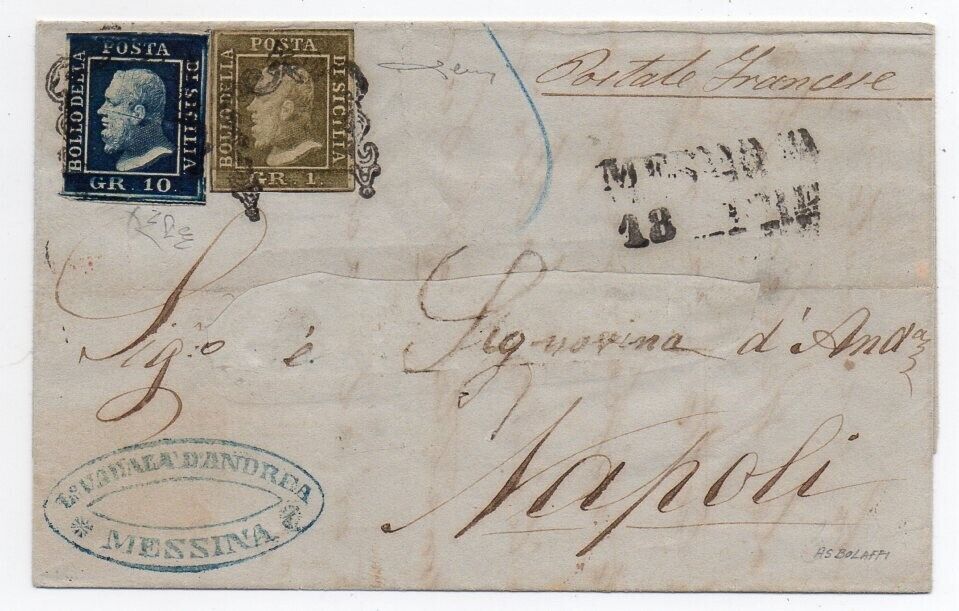 POSTA
BOLLO DELLA
DI SICILIA
GR. 10.
POSTA
BOLLO DELLA
DI SICILIA
GR. 1.
Postale Francese
MESSINA
18
Sig.o è Signorina d'And
Napoli
D'ANDREA
MESSINA
AS BOLAFFI